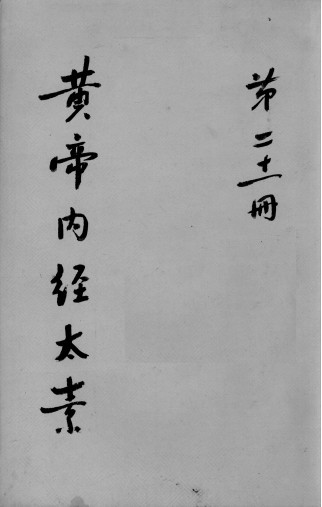 第二十一冊
黄帝内経太素